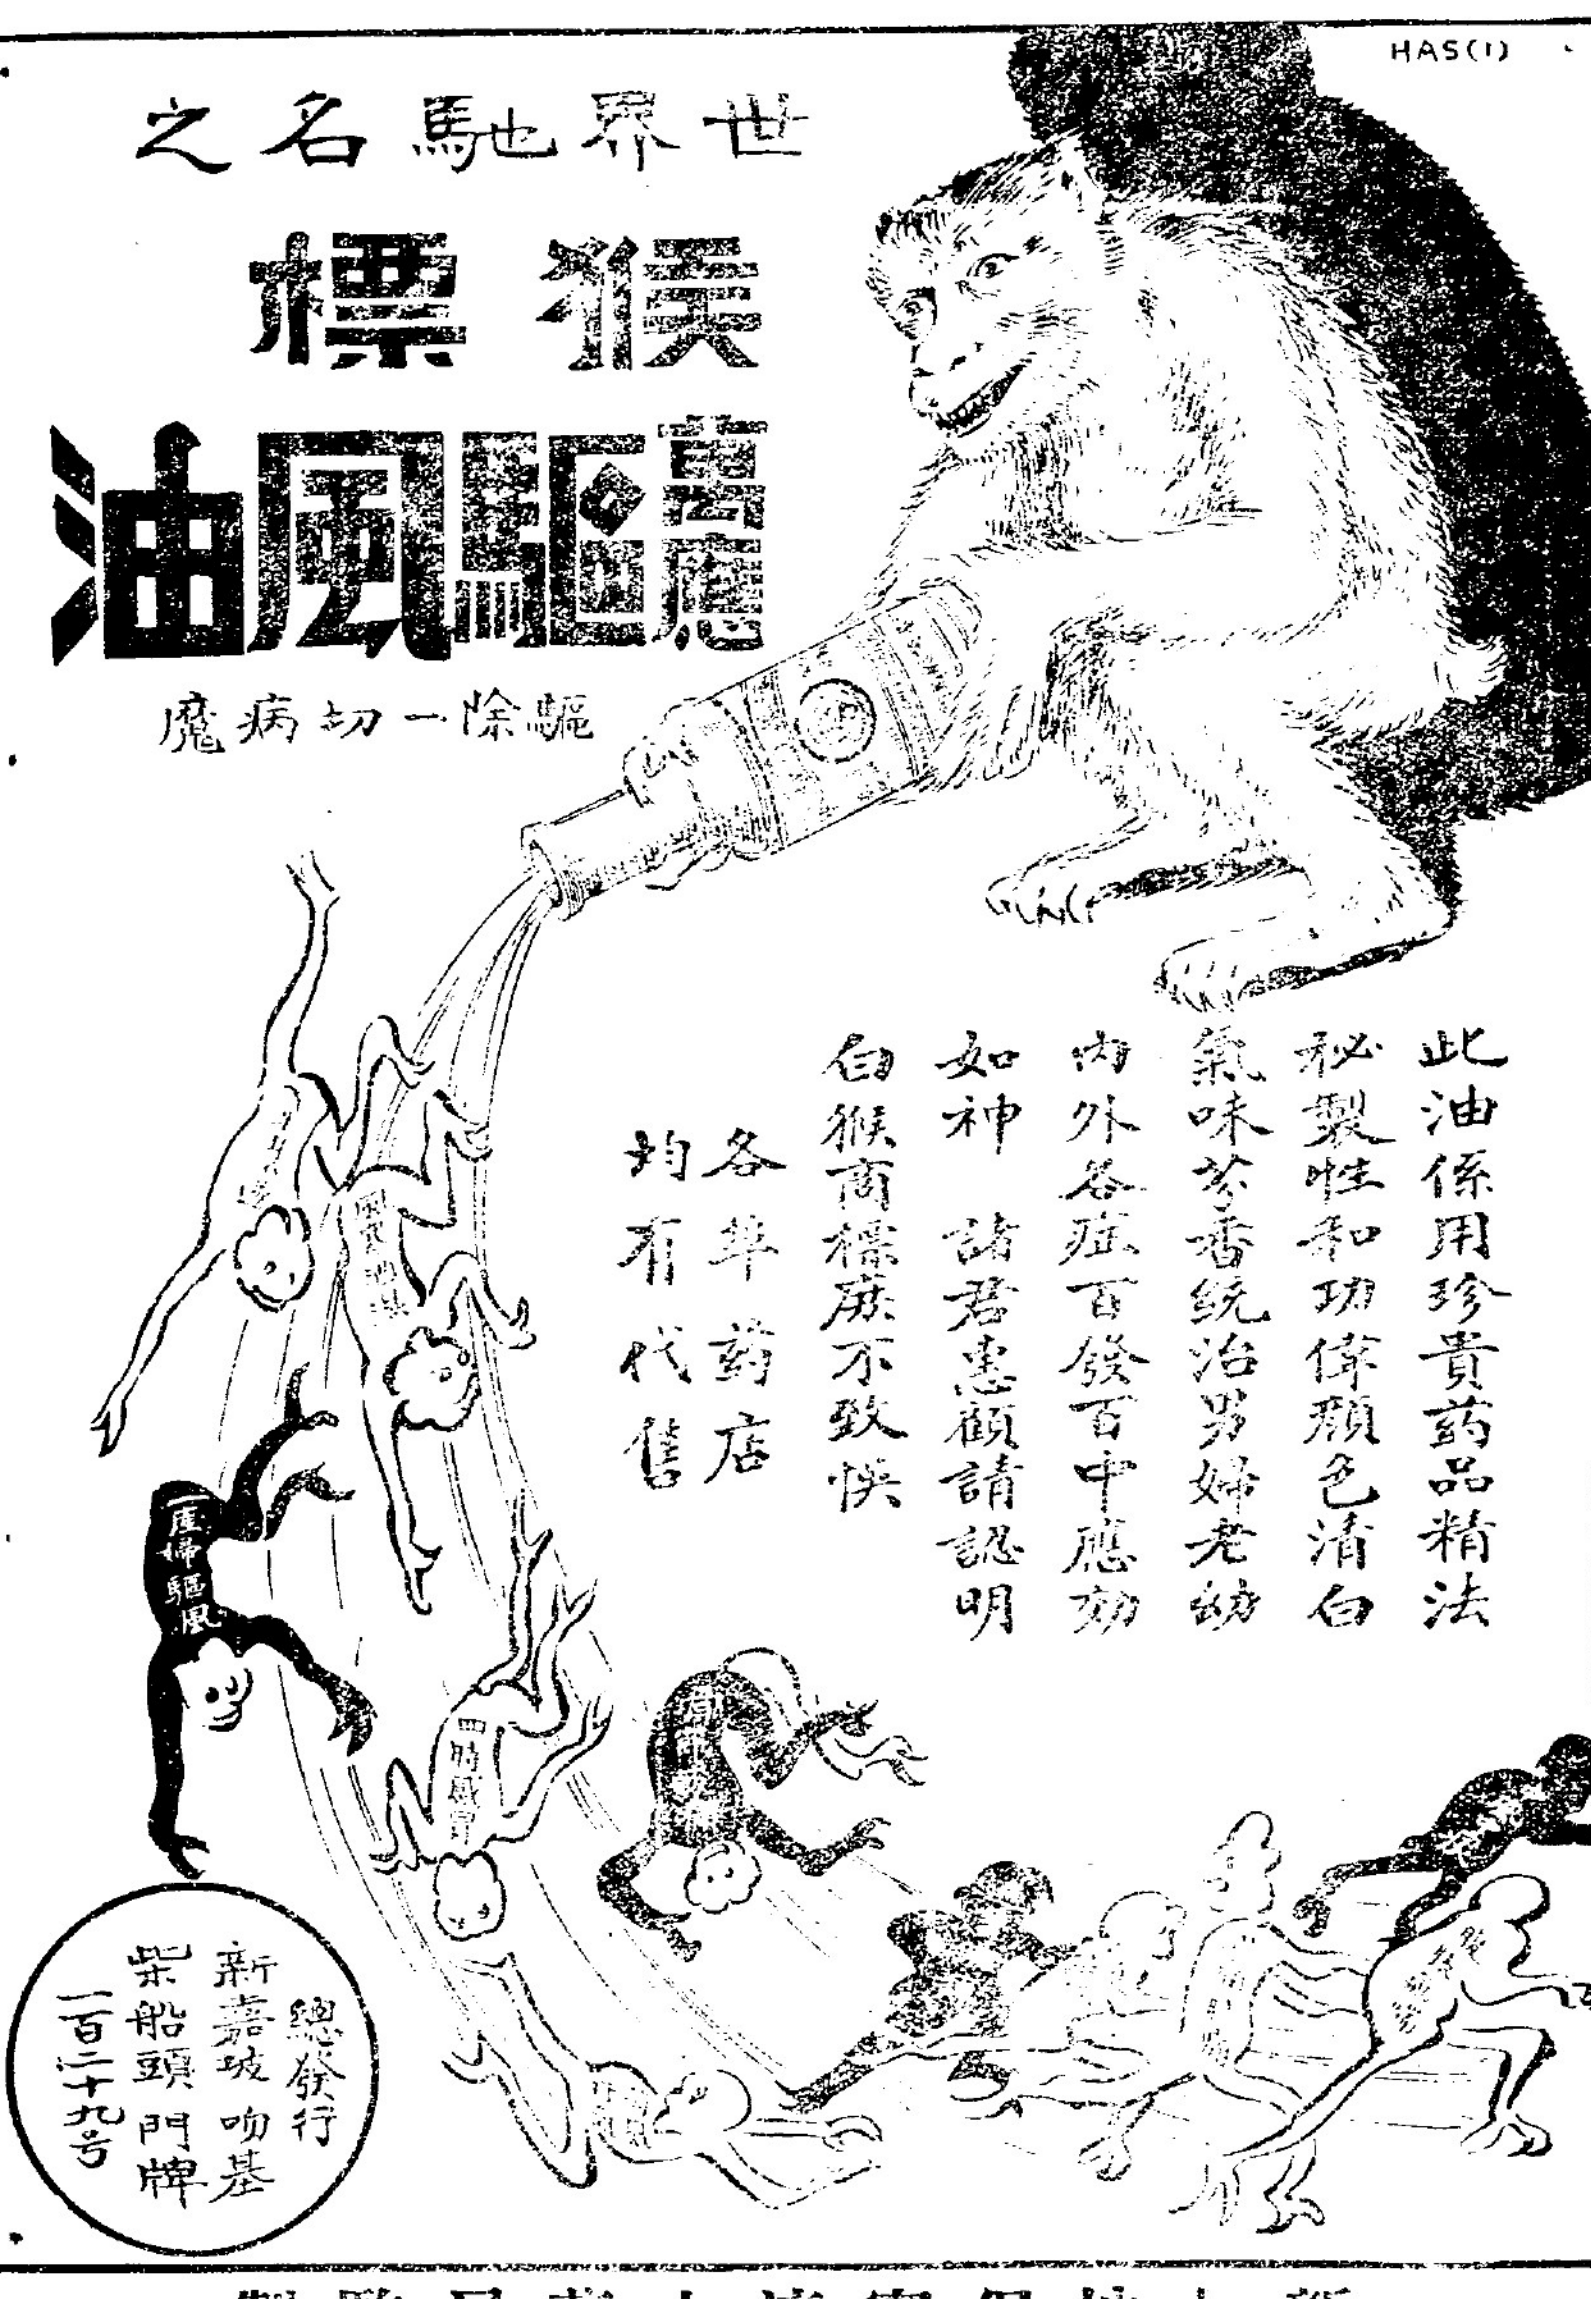 HAS(1)
世界馳名之
猴標
萬應驅風油
驅除一切病魔
此油係用珍貴葯品精法
秘製性和功偉顏色清白
氣味芬香統治男婦老幼
內外各症百發百中應効
如神 諸君惠顧請認明
白猴商標庶不致悮
各埠葯店
均有代售
產婦驅風
四時感冒
總發行
新嘉坡吻基
柴船頭門牌
一百二十九号